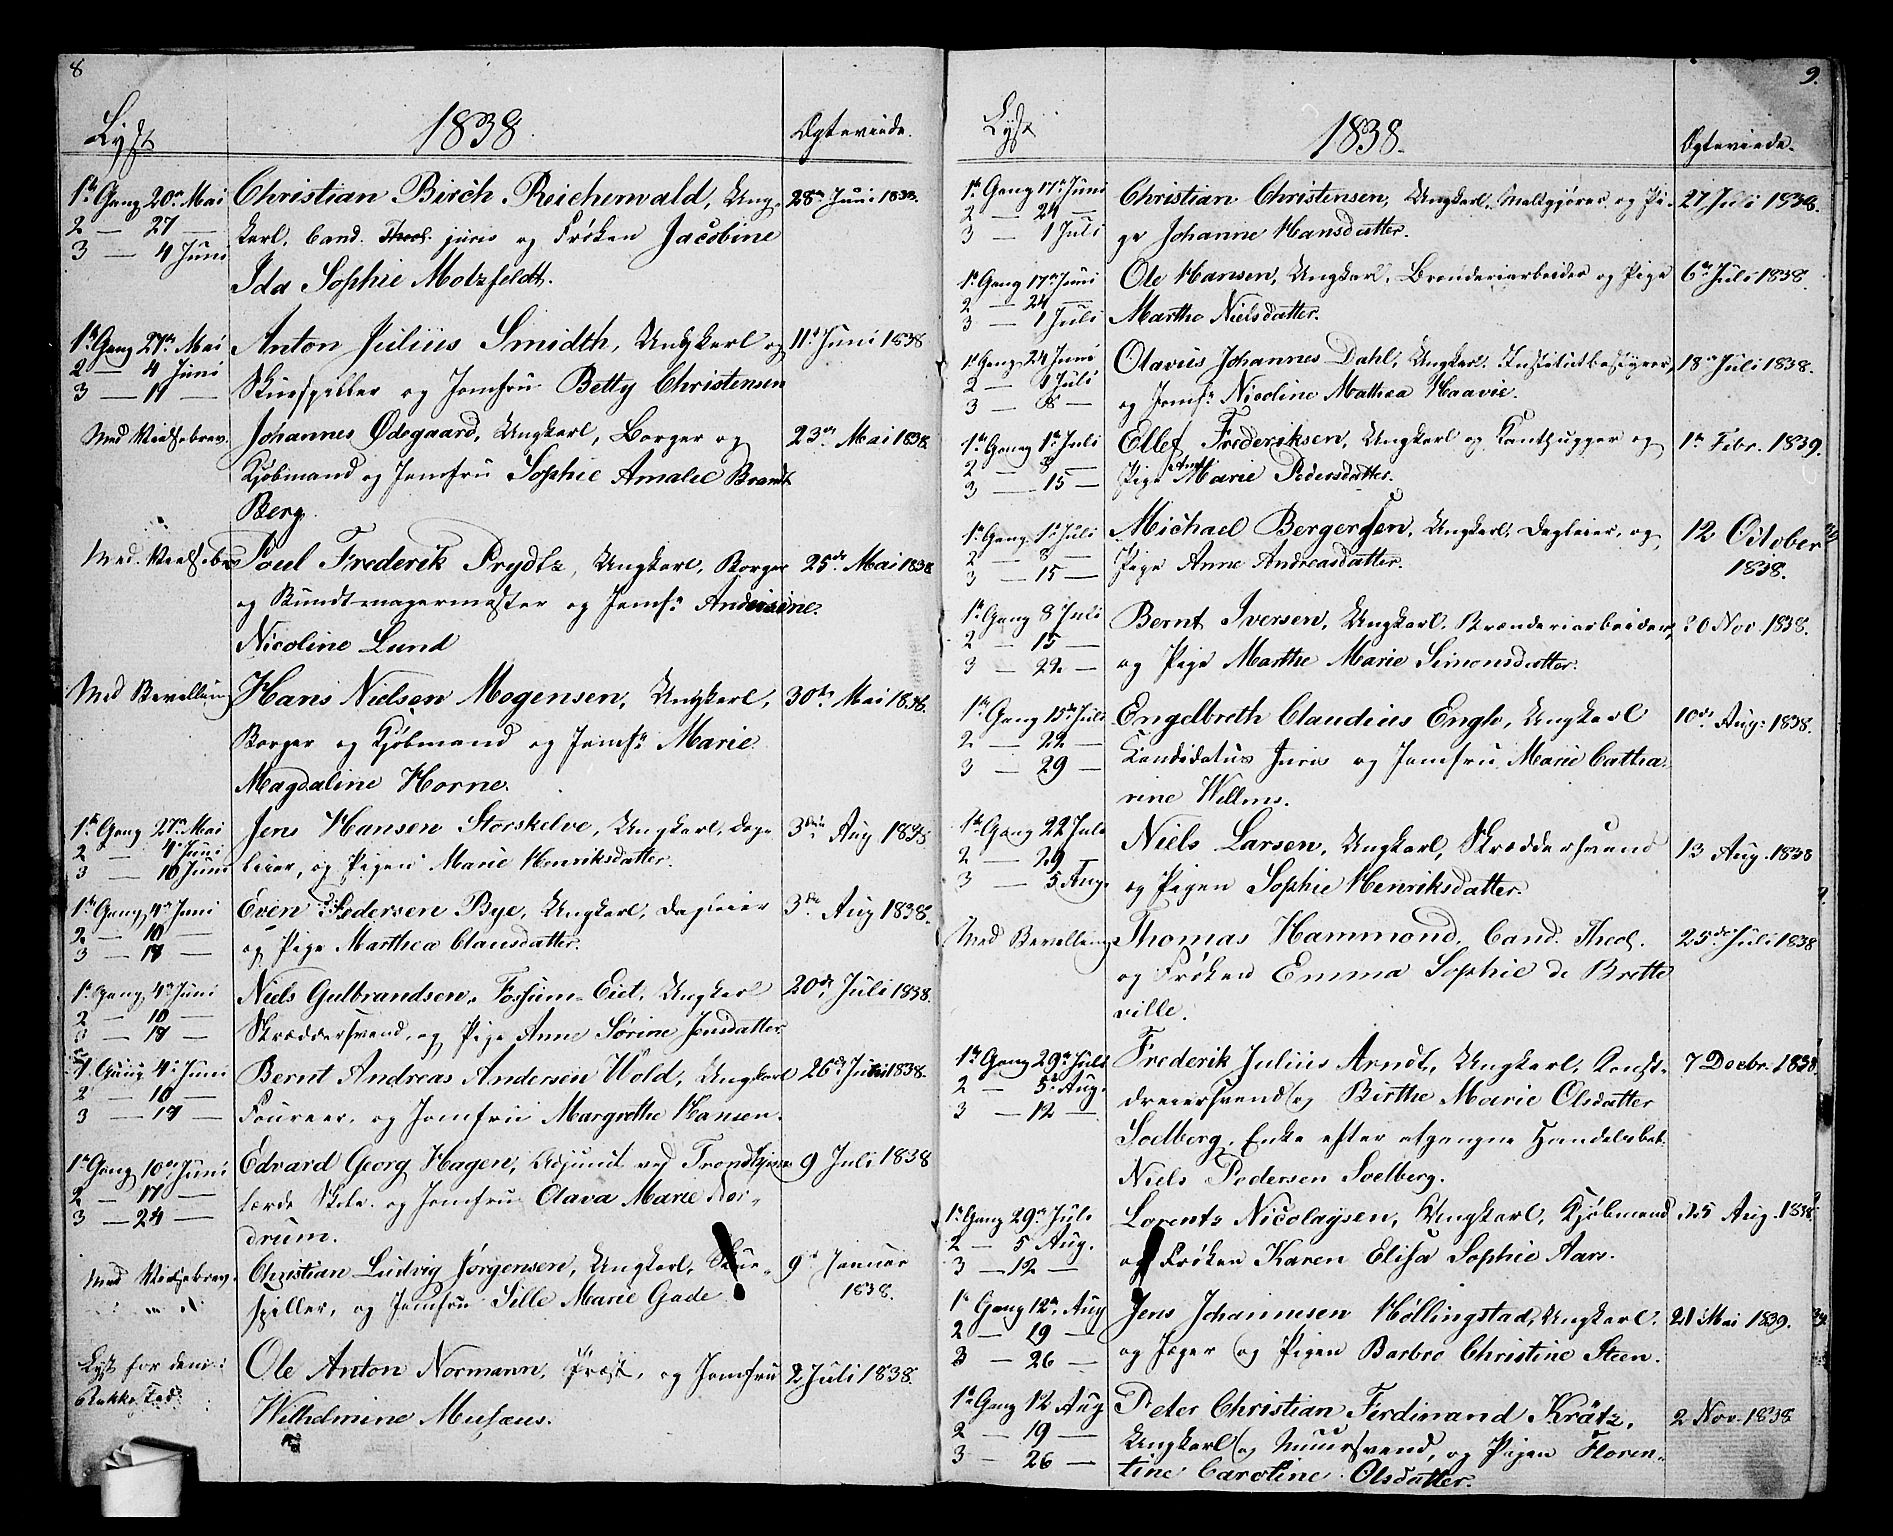 8
Lyst
1838.
Ægteviede.
1ste Gang 20de Mai
2 — 27 —
3 — 4 Juni
Christian Birch Reichenwald, Ung-
karl, Cand. Theol. juris og Frøken Jacobine
Ida Sophie Motzfeldt.
28de Juni 1838.
1ste Gang 27de Mai
2 — 4 Juni
3 — 11 —
Anton Julius Smidth, Ungkarl og
Skuespiller og Jomfru Betty Christensen
11te Juni 1838
Med Vielsebrev.
Johannes Ødegaard, Ungkarl, Borger og
Kjøbmand og Jomfru Sophie Amalie Brandt
Berg.
23de Mai 1838.
Med Vielsebrev
Poul Frederik Prydtz, Ungkarl, Borger
og Bundtmagermester og Jomfr:
Nicoline Lund
25de Mai 1838
Med Bevilling
Hans Nielsen Mogensen, Ungkarl,
Borger og Kjøbmand og Jomfr: Marie
Magdaline Horne.
30te Mai 1838.
1ste Gang 27de Mai
2 — 4 Juni
3 — 10 Juni
Jens Hansen Storskelve, Ungkarl, Dag-
leier, og Pigen Marie Henriksdatter.
3die Aug 1838
1ste Gang 4de Juni
2 — 10 —
3 — 17 —
Even Pedersen Bye, Ungkarl, Dagleier
og Pige Marthea Clausdatter.
3die Aug 1838.
1ste Gang 4de Juni
2 — 10 —
3 — 17 —
Niels Gulbrandsen, Fossum-Eiet, Ungkarl
Skræddersvend, og Pige Anne Sørine Jensdatter
20de Juli 1838.
1ste Gang 4de Juni
2 — 10 —
3 — 17 —
Bernt Andreas Andersen Wold, Ungkarl
Foureer, og Jomfru Margrethe Hansen.
26de 1838.
1ste Gang 10de Juni
2 — 17 —
3 — 24 —
Edvard Georg Hagen, Adjunct ved Trondhjems
lærde Skole. og Jomfru Olava Marie Nor-
drum.
9 Juli 1838
Med Vielsebrev.
Christian Ludvig Jørgensen, Ungkarl, Skue-
spiller, og Jomfru Sille Marie Gade
9de Januar
1838.
Lyst for dem i
Rakkestad
Ole Anton Normann, Præst, og Jomfru
Wilhelmine Musæus.
2 Juli 1838.
9.
Lyst
1838.
Ægteviede.
1ste Gang 17de Juni
2 — 24 —
3 — 1 Juli
Christian Christensen, Ungkarl, Maltgjører og Pi-
ge Johanne Hansdatter.
27 Juli 1838.
1ste Gang 17de Juni
2 — 24 —
3 — 1 Juli
Ole Hansen, Ungkarl, Brænderiarbeider og Pige
Marthe Nielsdatter.
6te Juli 1838.
1ste Gang 24 Juni
2 — 1 Juli
3 — 8 —
Olavius Johannes Dahl, Ungkarl, Institutbestyrer,
og Jomfr: Nicoline Mathea Haavie.
18de Juli 1838.
1ste Gang 1ste Juli
2 — 8 —
3 — 15 —
Ellef Frederiksen, Ungkarl og Stenhugger og
Pige Marie Pedersdatter.
1ste Febr. 1839.
1ste Gang 1ste Juli
2 — 8 —
3 — 15 —
Michael Bergersen, Ungkarl, Dagleier, og
Pige Anne Andreasdatter.
12 October
1838.
1ste Gang 8 Juli
2 — 15 —
3 — 22 —
Bernt Iversen, Ungkarl, Brænderiarbeider,
og Pige Marthe Marie Simonsdatter.
30 Nov. 1838.
1ste Gang 15de Juli
2 — 22 —
3 — 29 —
Engelbreth Claudius Engh, Ungkarl
Kandidatus Juris og Jomfru Marie Catha-
rine Willms.
10de Aug. 1838.
1ste Gang 22 Juli
2 — 29 —
3 — 5 Aug.
Niels Larsen, Ungkarl, Skræddersvend
og Pigen Sophie Henriksdatter.
13 Aug. 1838
Med Bevilling
Thomas Hammond, Cand. Theol.
og Frøken Emma Sophie de Brette
ville.
25de Juli 1838
1ste Gang 29de Juli
2 — 5te Aug.
3 — 12 —
Frederik Julius Arndt, Ungkarl, Konst-
dreiersvend og Birthe Marie Olsdatter
Soelberg, Enke efter afgangne Handelsbet.
Niels Pedersen Soelberg.
7 Decbr. 1838.
1ste Gang 29de Juli
2 — 5 Aug.
3 — 12 —
Lorents Nicolaysen, Ungkarl, Kjøbmand
og Frøken Karen Elisa Sophie Aars.
25 Aug. 1838.
1ste Gang 12te Aug
2 — 19 —
3 — 26 —
Jens Johannesen Høllingstad, Ungkarl,
og Jæger og Pigen Barbro Christine Steen.
21 Mai 1839.
1ste Gang 12 Aug
2 — 19 —
3 — 26 —
Peter Christian Ferdinand Krätz,
Ungkarl og Muursvend, og Pigen Floren-
tine Caroline Olsdatter.
2 Nov. 1838